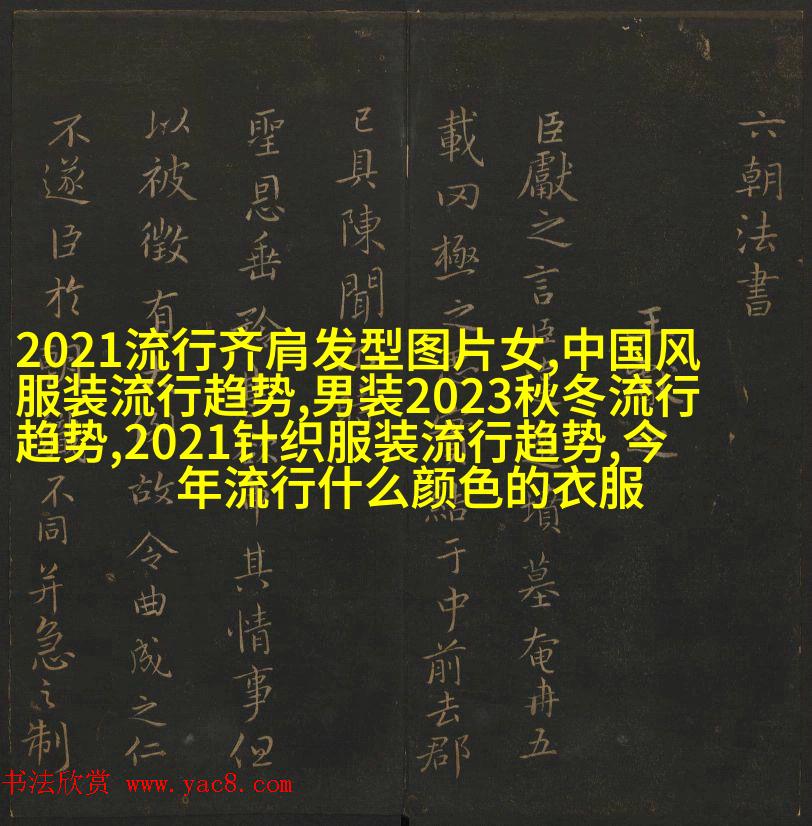 六朝法書
王
臣獻之言臣墳墓奄冉五
載罔極之思結于中前去郡
已具陳聞
聖恩垂其情事但
以被徵有故令曲成之仁
不遂臣於不同并急之制
2021流行齐肩发型图片女,中国风
服装流行趋势,男装2023秋冬流行
趋势,2021针织服装流行趋势,今
年流行什么颜色的衣服
书法欣赏 www.yac8.com